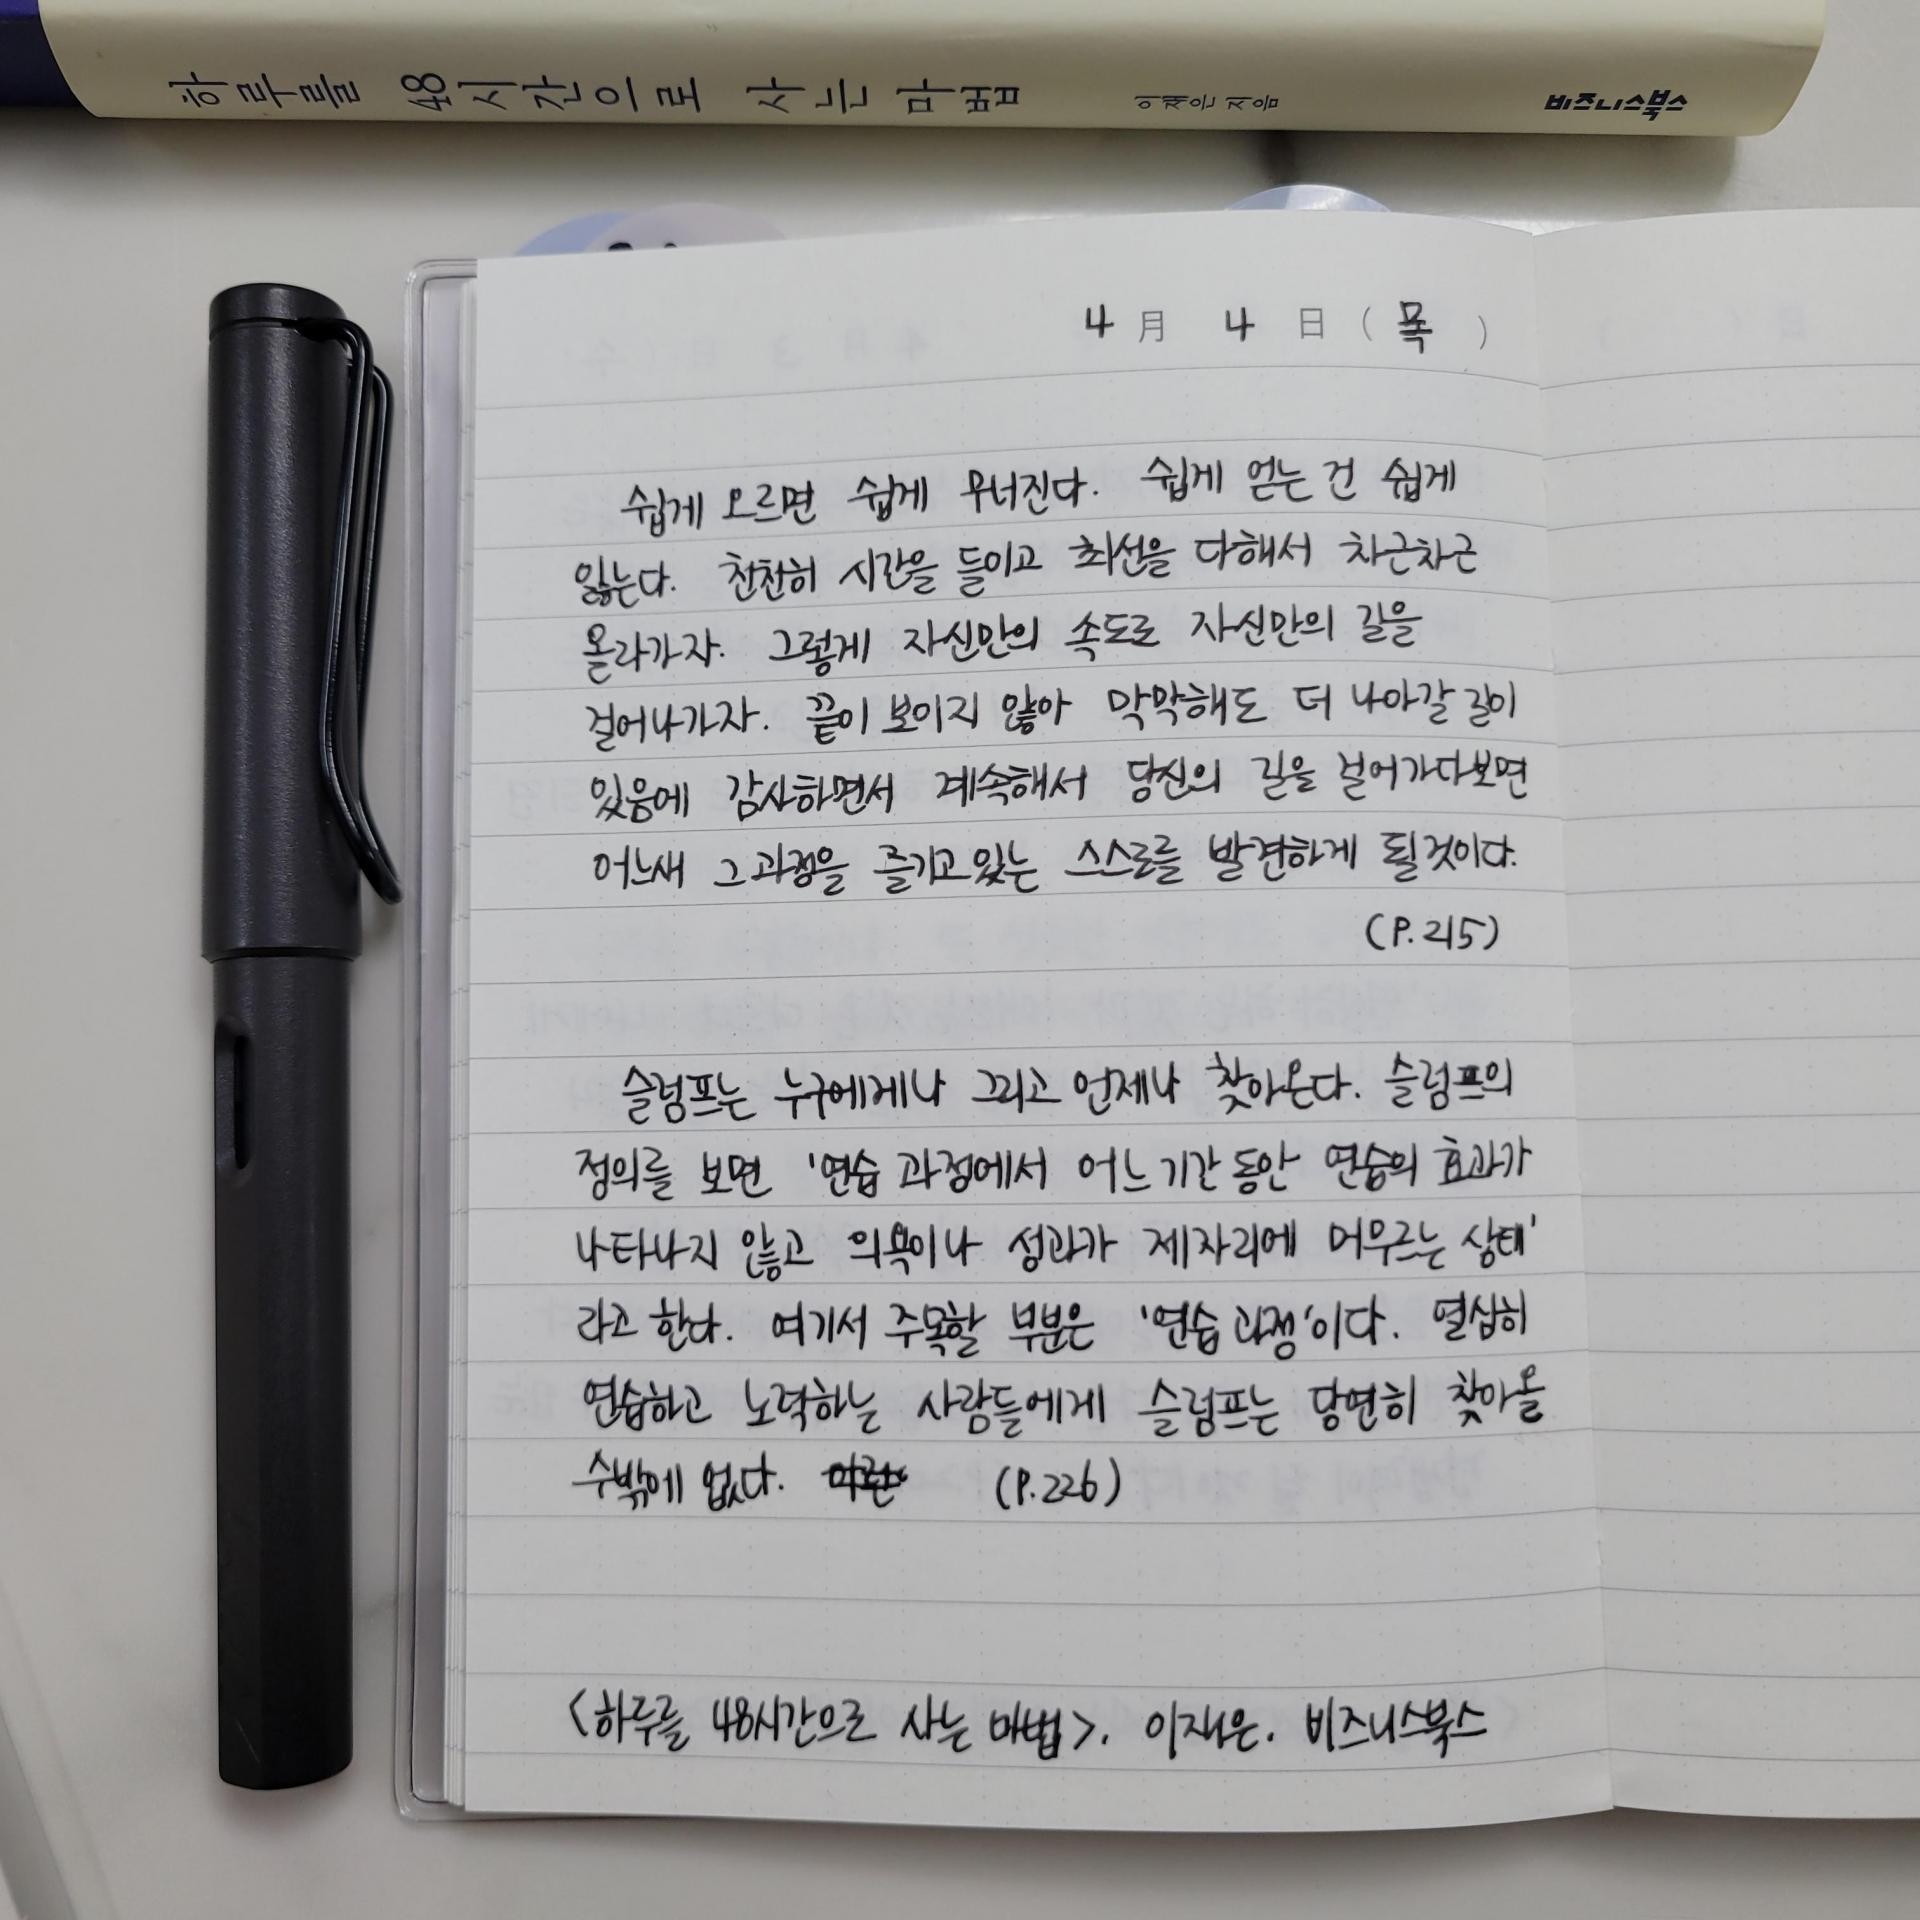 하루를 48시간으로 사는 마법 이재은 지음 비즈니스북스
4月 4日(목)
쉽게 오르면 쉽게 무너진다. 쉽게 얻는 건 쉽게
잃는다. 찬찬히 시간을 들이고 최선을 다해서 차근차근
올라가자. 그렇게 자신만의 속도로 자신만의 길을
걸어나가자. 끝이 보이지 않아 막막해도 더 나아갈 길이
있음에 감사하면서 계속해서 당신의 길을 걸어가다보면
어느새 그 과정을 즐기고 있는 스스로를 발견하게 될 것이다.
(P.215)
슬럼프는 누구에게나 그리고 언제나 찾아온다. 슬럼프의
정의를 보면 '연습 과정에서 어느 기간 동안 연습의 효과가
나타나지 않고 의욕이나 성과가 제자리에 머무르는 상태'
라고 한다. 여기서 주목할 부분은 '연습 과정'이다. 열심히
연습하고 노력하는 사람들에게 슬럼프는 당연히 찾아올
수밖에 없다. (P.226)
<하루를 48시간으로 사는 마법>. 이재은. 비즈니스북스